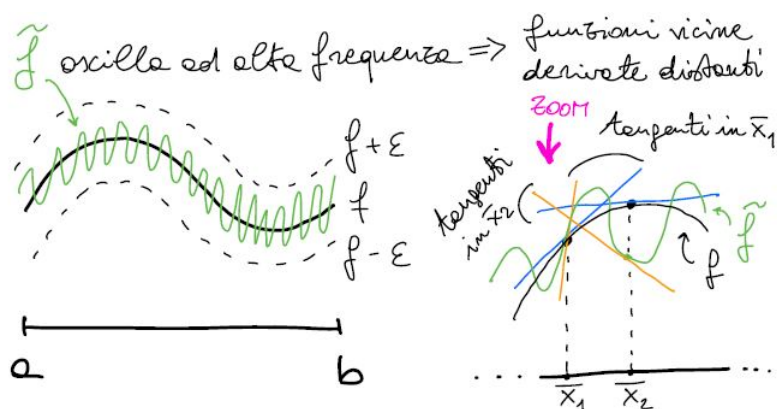 f̃ oscilla ad alta frequenza => funzioni vicine
derivate distanti
ZOOM
tangenti in x̄₁
tangenti
in x̄₂
f+ε
f
f-ε
f
f̃
a
b
... x̄₁ x̄₂ ...